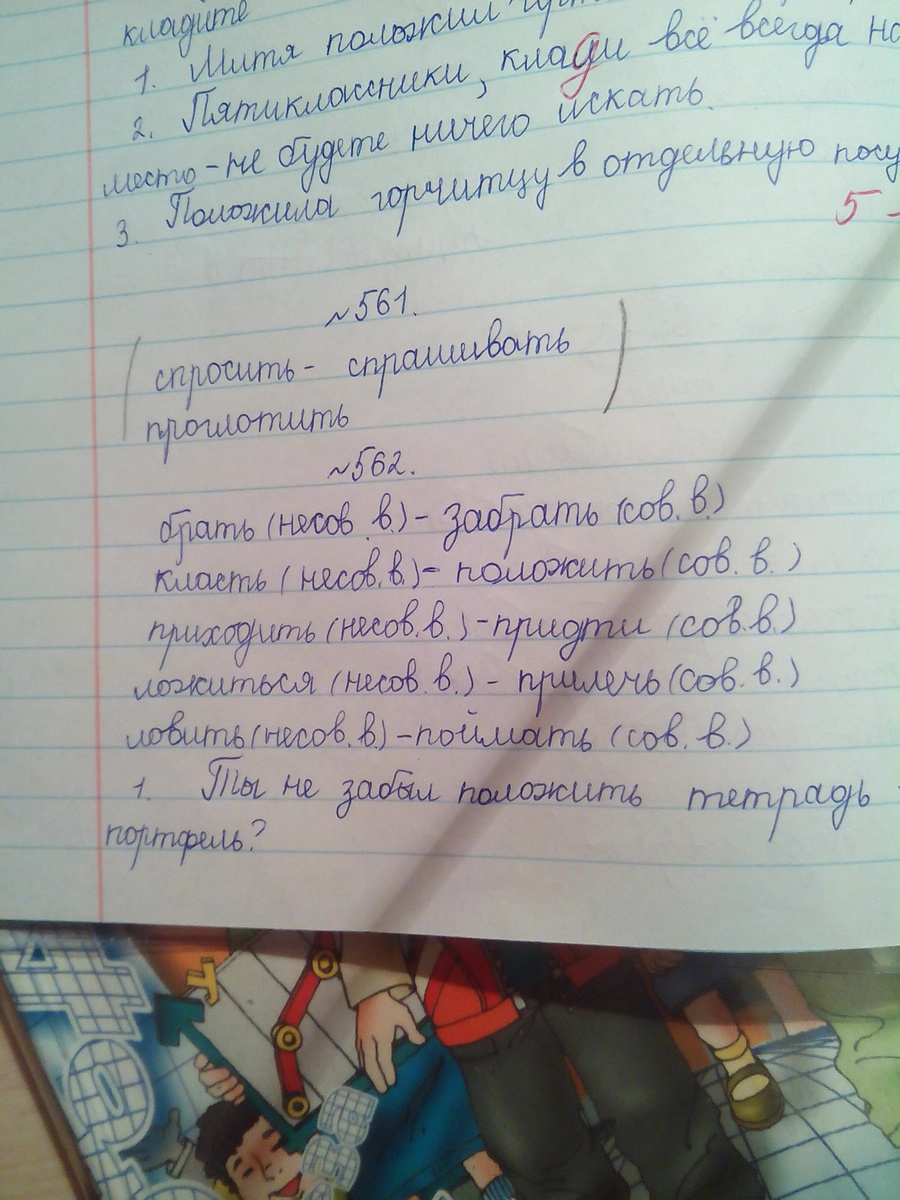 кладите
1. Митя положил
2. Пятиклассники, клади всё всегда на
место - не будете ничего искать.
3. Положила горчитцу в отдельную посу
5 -
№561.
спросить - спрашивать
проглотить
№562.
брать (несов. в.) - забрать (сов. в.)
класть (несов. в.) - положить (сов. в.)
приходить (несов. в.) - придти (сов. в.)
ложиться (несов. в.) - прилечь (сов. в.)
ловить (несов. в.) - поймать (сов. в.)
1. Ты не забыл положить тетрадь
портфель?